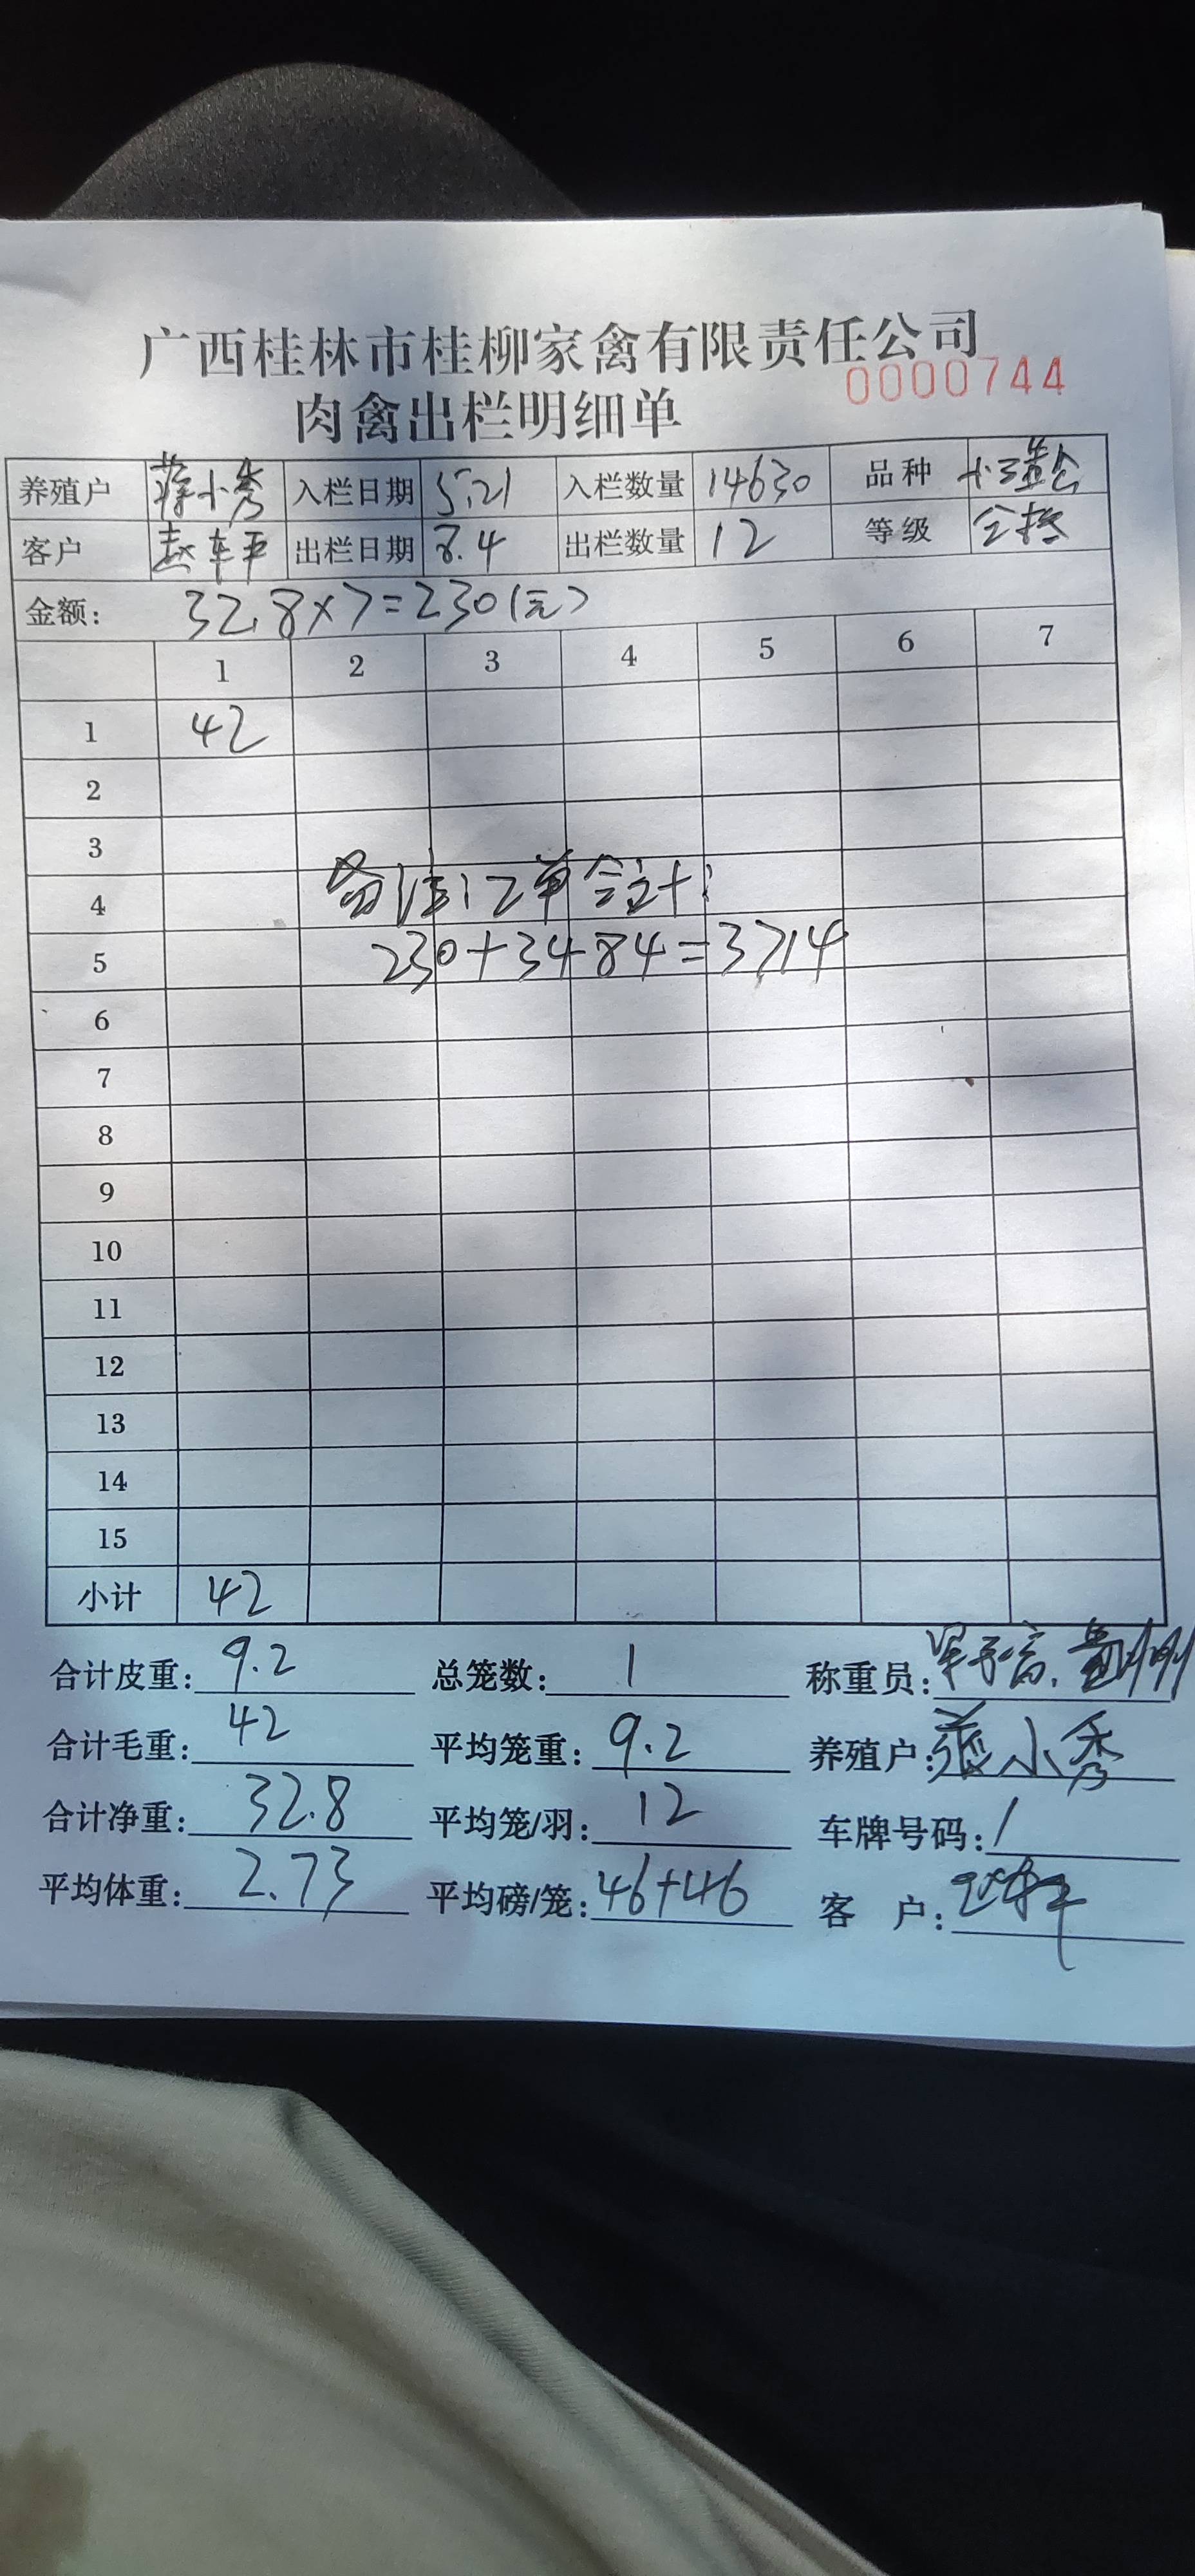 广西桂林市桂柳家禽有限责任公司
0000744
肉禽出栏明细单
养殖户 蒋小秀 入栏日期 5.21 入栏数量 14630 品种
客户 出栏日期 8.4 出栏数量 12 等级 合格
金额: 32.8×7=230(元)
1 2 3 4 5 6 7
1 42
2
3
4 备注:2单合计:
5 230+3484=3714
6
7
8
9
10
11
12
13
14
15
小计 42
合计皮重: 9.2 总笼数: 1 称重员:
合计毛重: 42 平均笼重: 9.2 养殖户: 蒋小秀
合计净重: 32.8 平均笼/羽: 12 车牌号码: /
平均体重: 2.73 平均磅/笼: 46+46 客 户: